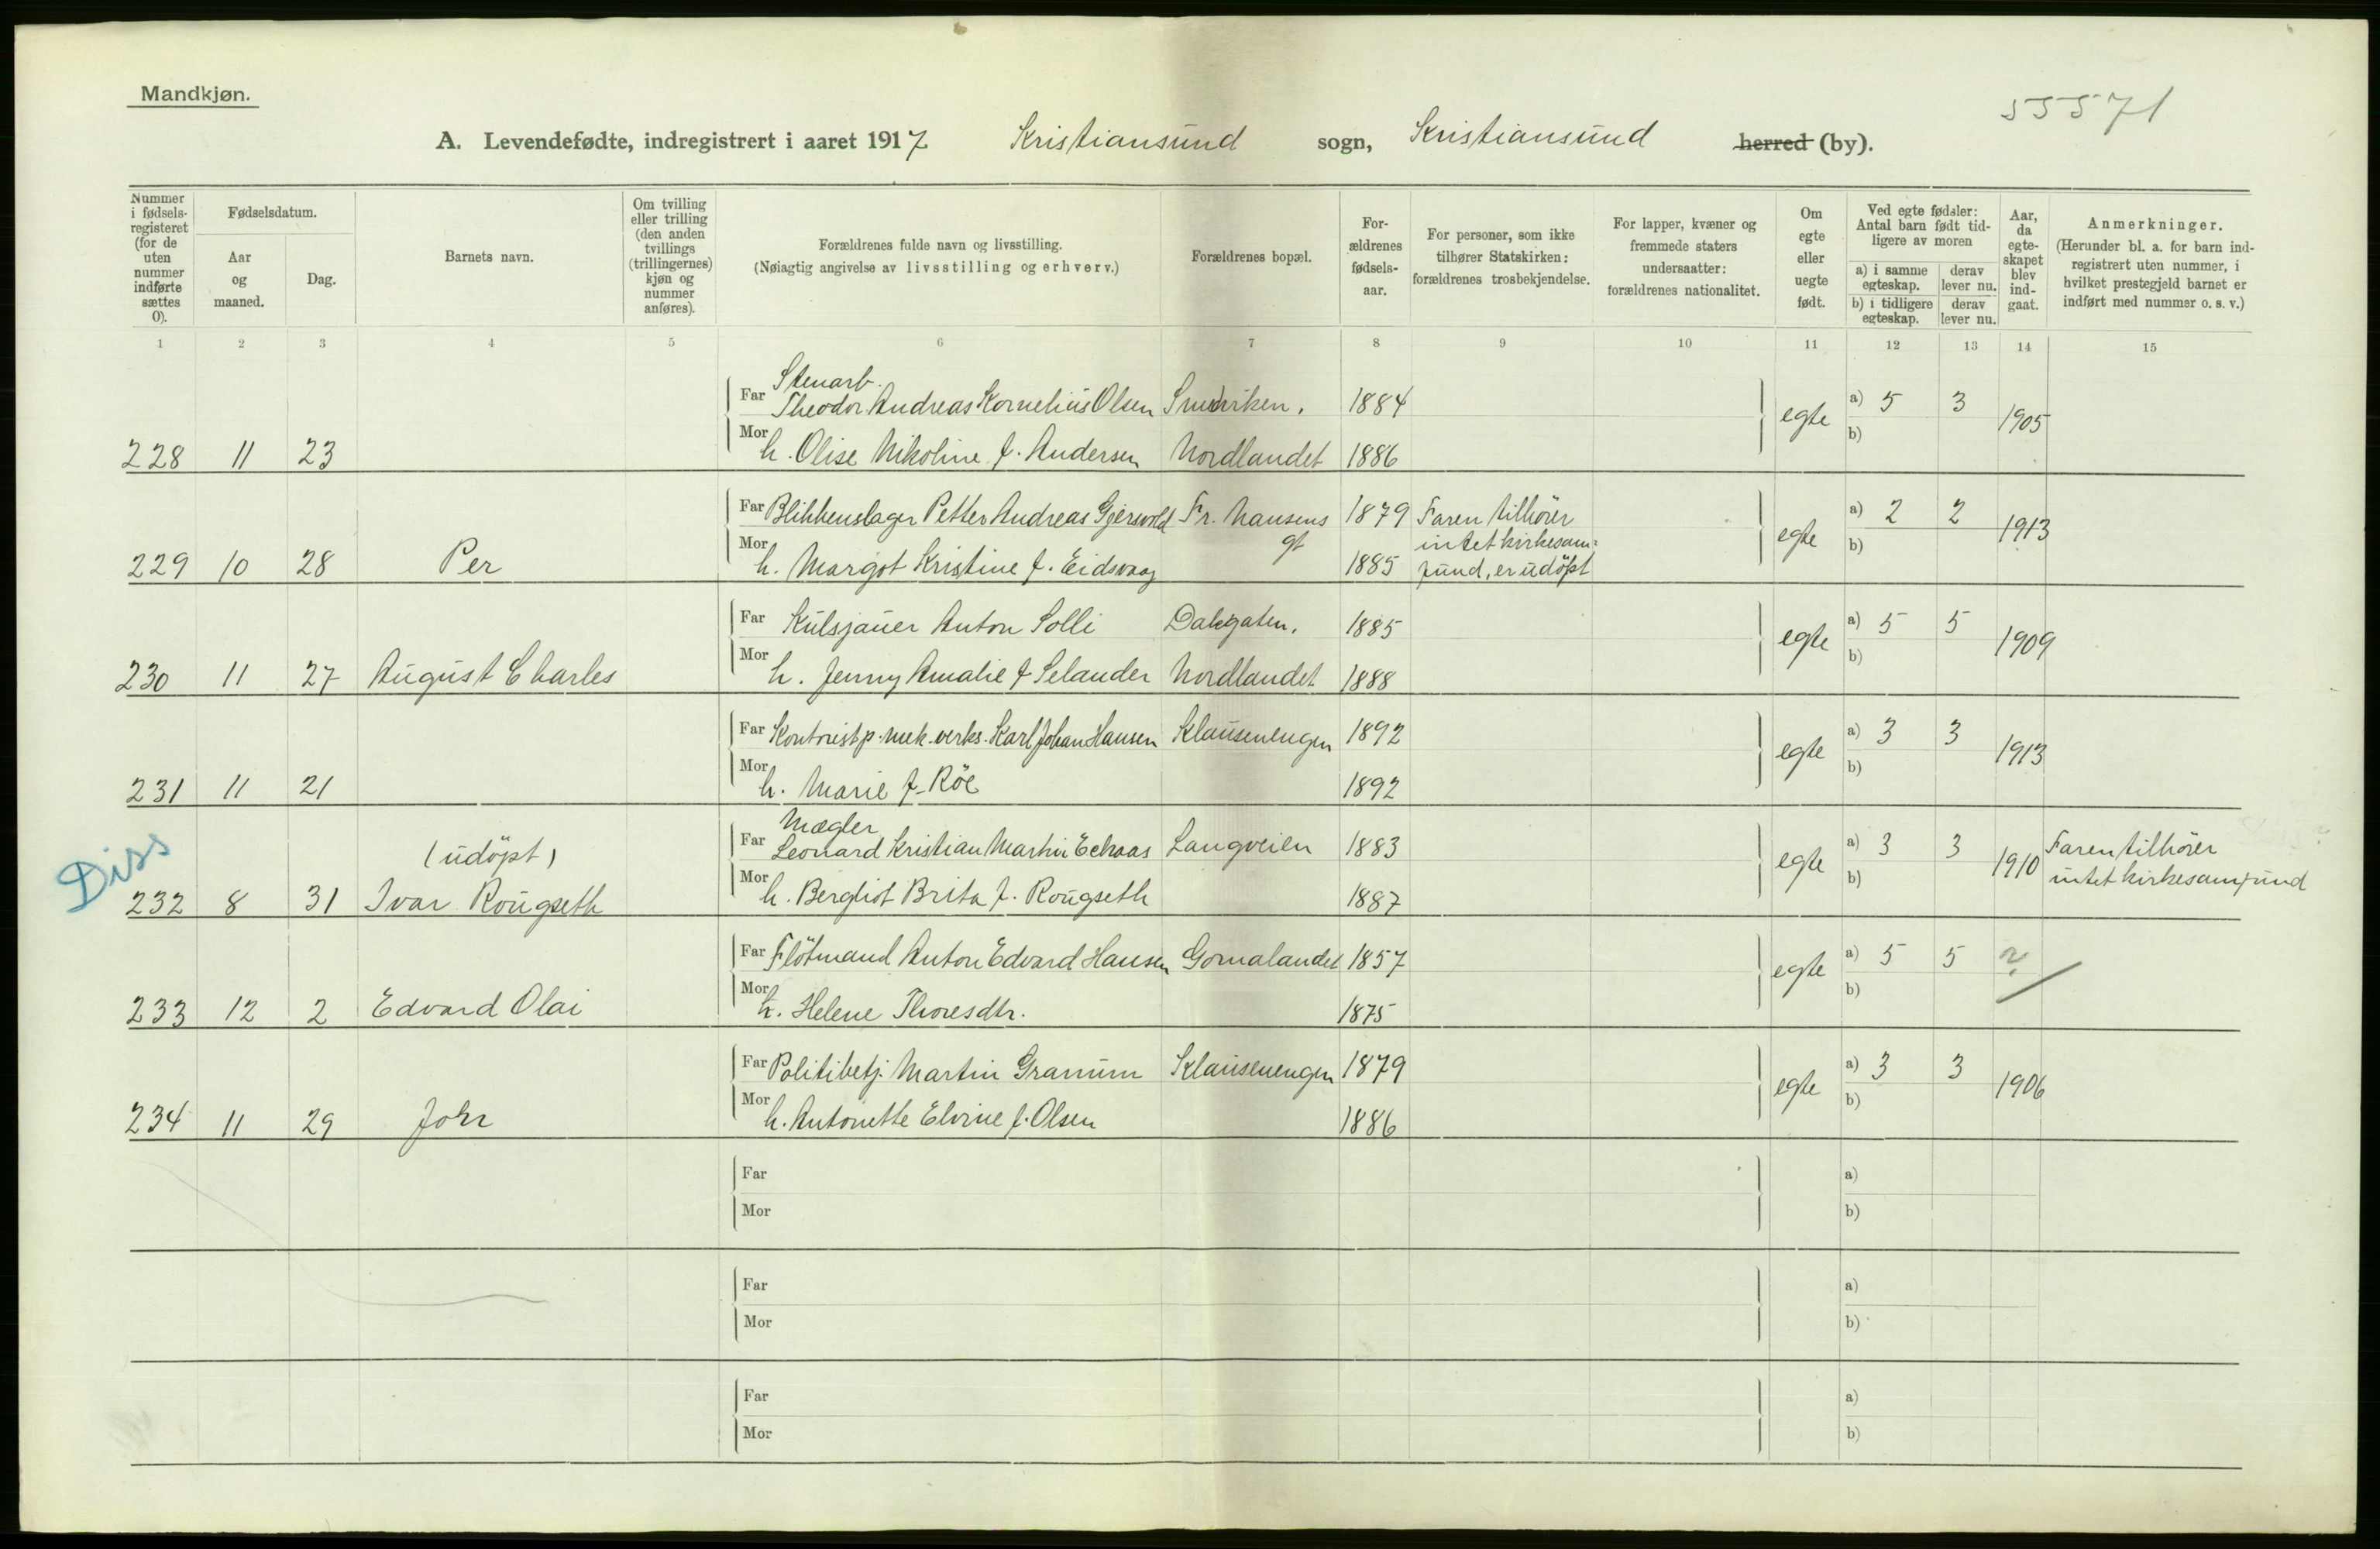 Mandkjøn.
55571
A. Levendefødte, indregistrert i aaret 1917 Kristiansund sogn, Kristiansund herred (by).
Nummer i fødsels-registeret (for de uten nummer indførte sættes 0).
Fødselsdatum.
Aar og maaned.
Dag.
Barnets navn.
Om tvilling eller trilling (den anden tvillings (trillingernes) kjøn og nummer anføres).
Forældrenes fulde navn og livsstilling.
(Nøiagtig angivelse av livsstilling og erhverv.)
Forældrenes bopæl.
For-ældrenes fødsels-aar.
For personer, som ikke tilhører Statskirken: forældrenes trosbekjendelse.
For lapper, kvæner og fremmede staters undersaatter: forældrenes nationalitet.
Om egte eller uegte født.
Ved egte fødsler: Antal barn født tid-ligere av moren
a) i samme egteskap.
derav lever nu.
b) i tidligere egteskap.
derav lever nu.
Aar, da egte-skapet blev ind-gaat.
Anmerkninger.
(Herunder bl. a. for barn ind-registrert uten nummer, i hvilket prestegjeld barnet er indført med nummer o. s. v.)
1 2 3 4 5 6 7 8 9 10 11 12 13 14 15
Stenarb.
Far Theodor Andreas Kornelius Olsen 1884 egte a) 5 3 1905
228 11 23 Mor h. Olise Nikoline f. Andersen Nordlandet 1886 b)
Far Blikkenslager Petter Andreas Gjersvold Fr. Nansens gt 1879 Faren tilhører egte a) 2 2 1913
intet kirkesam=
229 10 28 Per Mor h. Margot Kristine f. Eidsvaag 1885 fund, er udöpt b)
Far Kulsjauer Anton Solli Dalegaten, 1885 egte a) 5 5 1909
230 11 27 August Charles Mor h. Jenny Amalie f Selander Nordlandet 1888 b)
Far Kontorist p. mek. verks. Karl Johan Hansen Klausenengen 1892 egte a) 3 3 1913
231 11 21 Mor h. Marie f. Röe 1892 b)
Diss
Mægler
(udöpt) Far Leonard Kristian Martin Langveien 1883 egte a) 3 3 1910 Faren tilhörer
intet kirkesamfund
232 8 31 Ivar Rougseth Mor h. Bergliot Brita f. Rougseth 1887 b)
Far Flötmand Anton Edvard Hansen Gomalandet 1857 egte a) 5 5 ?
233 12 2 Edvard Olai Mor h. Helene Thoresdtr. 1875 b)
Far Politibetj. Martin Granum Klausenengen 1879 egte a) 3 3 1906
234 11 29 John Mor h. Antonette Elvine f. Olsen 1886 b)
Far a)
Mor b)
Far a)
Mor b)
Far a)
Mor b)